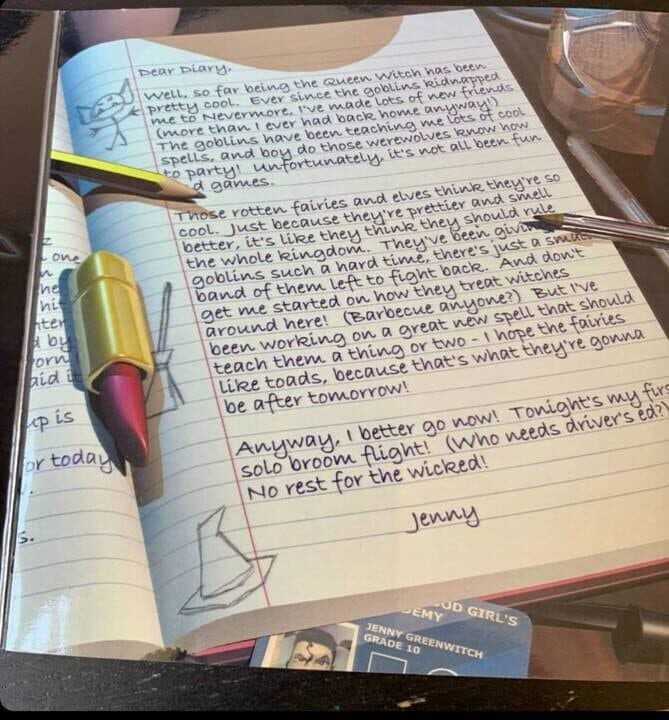 Dear Diary,
Well, so far being the Queen Witch has been
pretty cool. Ever since the goblins kidnapped
me to Nevermore, I've made lots of new friends
(more than I ever had back home anyway!)
The goblins have been teaching me lots of cool
spells, and boy do those werewolves know how
to party! Unfortunately, it's not all been fun
d games.
Those rotten fairies and elves think they're so
cool. Just because they're prettier and smell
better, it's like they think they should rule
the whole kingdom. They've been givin
goblins such a hard time, there's just a small
band of them left to fight back. And don't
get me started on how they treat witches
around here! (Barbecue anyone?) But I've
been working on a great new spell that should
teach them a thing or two - I hope the fairies
like toads, because that's what they're gonna
be after tomorrow!
Anyway, I better go now! Tonight's my firs
solo broom flight! (Who needs driver's ed?)
No rest for the wicked!
Jenny
z
one
n
he
hi
ter,
d by
orn
aid i
up is
or today
s.
OD GIRL'S
DEMY
JENNY GREENWITCH
GRADE 10